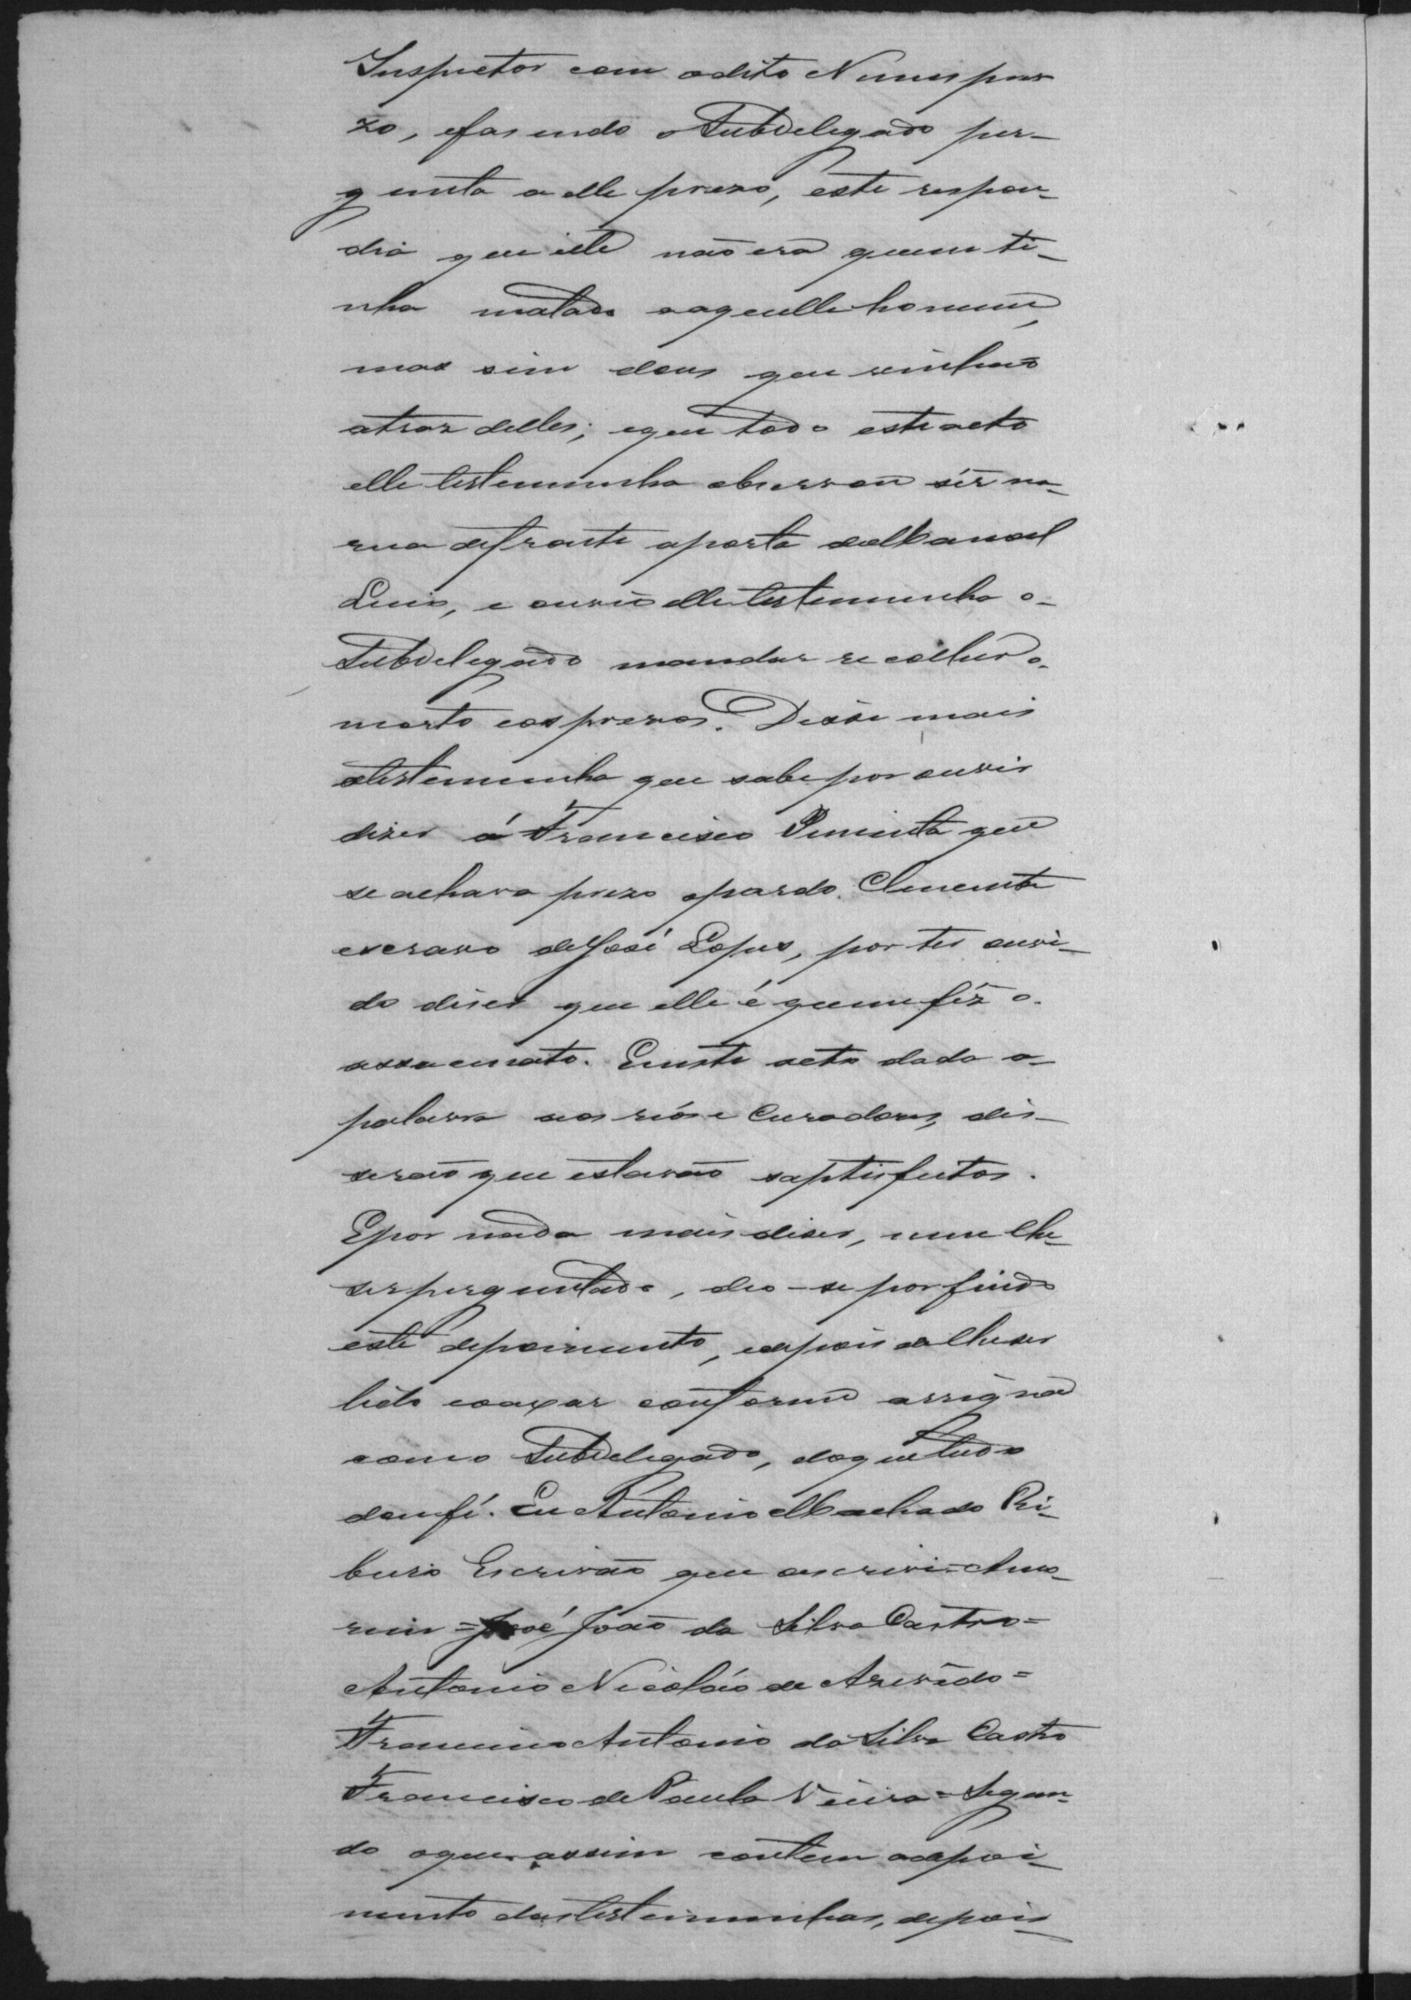 Inspector com o dito Nunes pre
zo, efasendo o Subdelegado per-
gunta a elle prezo, este respon-
dia que elle não era quem ti-
nha matado aaquelle homem,
mas sim dous que vinhão
atraz delles; eque todo este acto
elle testemunha observou sêr na
rua defronte aporta de Manoel
Luis, e ouvio elle testemunha o-
Subdelegado mandar recolher o-
morto eos prezos. Disse mais
atestemunha que sabe por ouvir
diser á Francisco Pimenta que
se achava prezo opardo Clemente
escravo de José Lopes, por ter ouvi-
do diser que elle é quem fêz o-
assacinato. Eneste acto dada a-
palavra aos réos e Curadores, dis-
serão que estavão saptisfeitos.
Epor nada mais diser, nem lhe
ser perguntado, deo-se por findo
este depoimento, edepois de lhe ser
lido eoaxar conforme assignou
com o Subdelegado, do que tudo
dou fé. Eu Antonio Machado Ri-
beiro Escrivão que oescrevi = Amo-
rim = José João da Silva Castro =
Antonio Nicoláo de Azevêdo =
Francisco Antonio da Silva Castro
Francisco de Paula Vieira = Segun-
do oque assim contem odepoi-
mento das testemunhas, depois